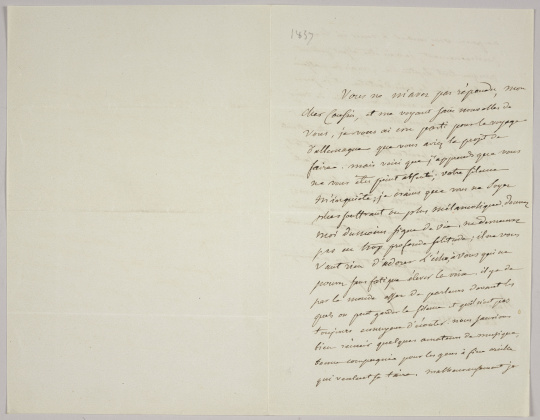 Vous ne m'avez pas répondu, mon
cher Cousin, et me voyant sans nouvelles de
vous, je vous ai cru parti pour le voyage
d'allemagne que vous aviez le projet de
faire. mais voici que j'apprends que vous
ne vous êtes point absenté; votre silence
m'inquiète; je crains que vous ne soyez
plus souffrant ou plus mélancolique, donnez
moi du moins signe de vie, ne demeurez
pas en trop profonde solitude; il ne vous
vaut rien d'adorer l'écho, à vous qui ne
pouvez sans fatigue élever la voix. il y a de
par le monde assez de parleurs devant les
quels on peut garder le silence et qu'il n'est pas
toujours ennuyeux d'écouter. nous saurions
bien réunir quelques amateurs de musique,
bonne compagnie pour les gens
qui veulent se taire. malheureusement je